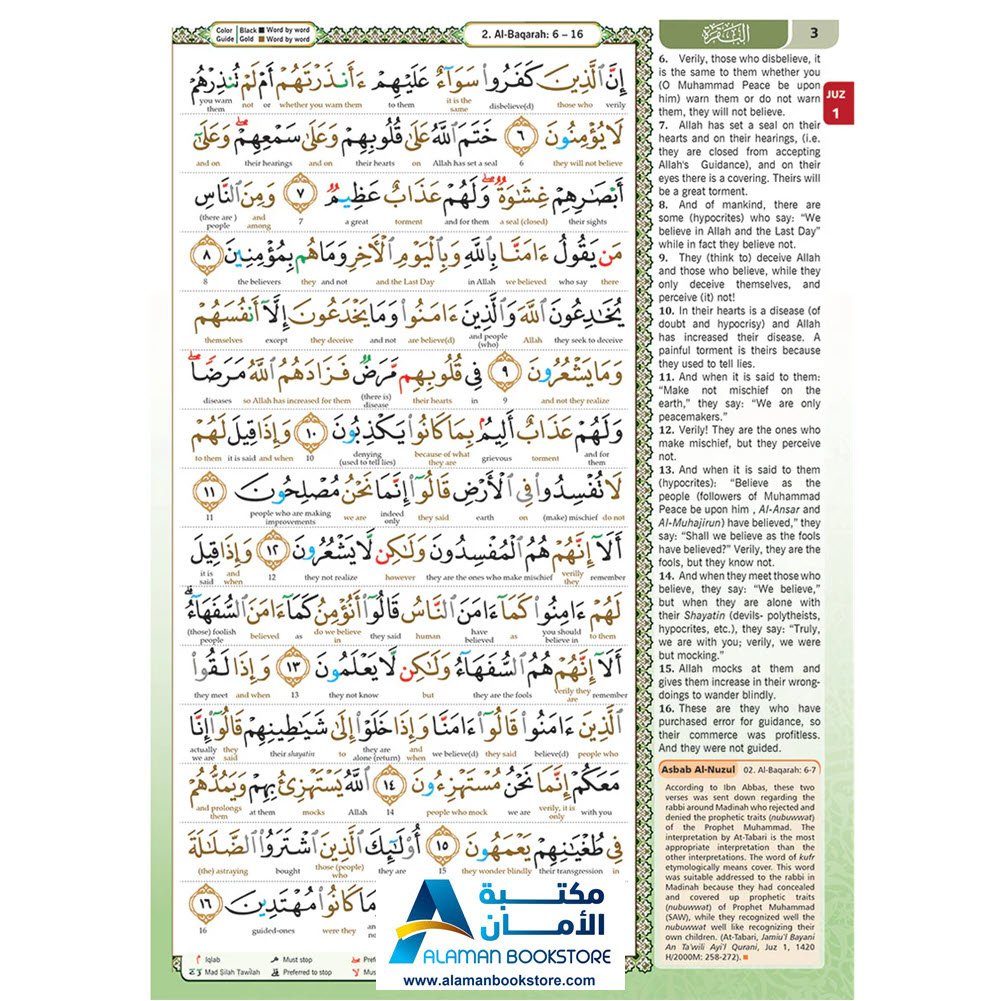 Color Guide
Black ■ Word by word
Gold ■ Word by word
2. Al-Baqarah: 6 – 16
البقرة
3
JUZ
1
إِنَّ ٱلَّذِينَ كَفَرُوا۟ سَوَآءٌ عَلَيْهِمْ ءَأَنذَرْتَهُمْ أَمْ لَمْ تُنذِرْهُمْ
verily those who disbelieve(d) it is the same to them whether you warn them or not you warn them
لَا يُؤْمِنُونَ ٦ خَتَمَ ٱللَّهُ عَلَىٰ قُلُوبِهِمْ وَعَلَىٰ سَمْعِهِمْ ۖ وَعَلَىٰٓ
they will not believe 6 Allah has set a seal on their hearts and on their hearings and on
أَبْصَـٰرِهِمْ غِشَـٰوَةٌ ۖ وَلَهُمْ عَذَابٌ عَظِيمٌ ٧ وَمِنَ ٱلنَّاسِ
their sights a seal (closed) and for them torment a great 7 and among (there are ) people
مَن يَقُولُ ءَامَنَّا بِٱللَّهِ وَبِٱلْيَوْمِ ٱلْـَٔاخِرِ وَمَا هُم بِمُؤْمِنِينَ ٨
there who say we believed in Allah and the Last Day and not they the believers 8
يُخَـٰدِعُونَ ٱللَّهَ وَٱلَّذِينَ ءَامَنُوا۟ وَمَا يَخْدَعُونَ إِلَّآ أَنفُسَهُمْ
they seek to deceive Allah and people (who) are believe(d) and not they deceive except themselves
وَمَا يَشْعُرُونَ ٩ فِى قُلُوبِهِم مَّرَضٌ فَزَادَهُمُ ٱللَّهُ مَرَضًا ۖ
and not they realize 9 in their hearts (there is) disease so Allah has increased for them diseases
وَلَهُمْ عَذَابٌ أَلِيمٌۢ بِمَا كَانُوا۟ يَكْذِبُونَ ١٠ وَإِذَا قِيلَ لَهُمْ
and for them torment grievous because of what they are denying (used to tell lies) 10 and when it is said to them
لَا تُفْسِدُوا۟ فِى ٱلْأَرْضِ قَالُوٓا۟ إِنَّمَا نَحْنُ مُصْلِحُونَ ١١
do not (make) mischief on earth they said indeed only we are people who are making improvements 11
أَلَآ إِنَّهُمْ هُمُ ٱلْمُفْسِدُونَ وَلَـٰكِن لَّا يَشْعُرُونَ ١٢ وَإِذَا قِيلَ
remember verilly they they are the ones who make mischief however they not realize 12 and when it is said
لَهُمْ ءَامِنُوا۟ كَمَآ ءَامَنَ ٱلنَّاسُ قَالُوٓا۟ أَنُؤْمِنُ كَمَآ ءَامَنَ ٱلسُّفَهَآءُ ۗ
to them you should believe in as have believed human they said do we believe in as believed (those) foolish people
أَلَآ إِنَّهُمْ هُمُ ٱلسُّفَهَآءُ وَلَـٰكِن لَّا يَعْلَمُونَ ١٣ وَإِذَا لَقُوا۟
remember verily they are they are the fools but they not know 13 and when they meet
ٱلَّذِينَ ءَامَنُوا۟ قَالُوٓا۟ ءَامَنَّا وَإِذَا خَلَوْا۟ إِلَىٰ شَيَـٰطِينِهِمْ قَالُوٓا۟ إِنَّا
people who believe(d) they said we believe(d) and when they are alone (return) to their shayatin they said actually we are
مَعَكُمْ إِنَّمَا نَحْنُ مُسْتَهْزِءُونَ ١٤ ٱللَّهُ يَسْتَهْزِئُ بِهِمْ وَيَمُدُّهُمْ
with you verily, it is only we are people who mock 14 Allah mocks at them and prolongs them
فِى طُغْيَـٰنِهِمْ يَعْمَهُونَ ١٥ أُو۟لَـٰٓئِكَ ٱلَّذِينَ ٱشْتَرَوُا۟ ٱلضَّلَـٰلَةَ
in their transgression they wander blindly 15 they are those (people) who bought (the) astraying
وَمَا كَانُوا۟ مُهْتَدِينَ ١٦
and not they were guided-ones 16
Iqlab
Must stop
Mad Silah Tawilah
Preferred to stop
6. Verily, those who disbelieve, it
is the same to them whether you
(O Muhammad Peace be upon
him) warn them or do not warn
them, they will not believe.
7. Allah has set a seal on their
hearts and on their hearings, (i.e.
they are closed from accepting
Allah's Guidance), and on their
eyes there is a covering. Theirs will
be a great torment.
8. And of mankind, there are
some (hypocrites) who say: “We
believe in Allah and the Last Day”
while in fact they believe not.
9. They (think to) deceive Allah
and those who believe, while they
only deceive themselves, and
perceive (it) not!
10. In their hearts is a disease (of
doubt and hypocrisy) and Allah
has increased their disease. A
painful torment is theirs because
they used to tell lies.
11. And when it is said to them:
“Make not mischief on the
earth,” they say: “We are only
peacemakers.”
12. Verily! They are the ones who
make mischief, but they perceive
not.
13. And when it is said to them
(hypocrites): “Believe as the
people (followers of Muhammad
Peace be upon him , Al-Ansar and
Al-Muhajirun) have believed,” they
say: “Shall we believe as the fools
have believed?” Verily, they are the
fools, but they know not.
14. And when they meet those who
believe, they say: “We believe,”
but when they are alone with
their Shayatin (devils- polytheists,
hypocrites, etc.), they say: “Truly,
we are with you; verily, we were
but mocking.”
15. Allah mocks at them and
gives them increase in their wrong-
doings to wander blindly.
16. These are they who have
purchased error for guidance, so
their commerce was profitless.
And they were not guided.
Asbab Al-Nuzul 02. Al-Baqarah: 6-7
According to Ibn Abbas, these two
verses was sent down regarding the
rabbi around Madinah who rejected and
denied the prophetic traits (nubuwwat)
of the Prophet Muhammad. The
interpretation by At-Tabari is the most
appropriate interpretation than the
other interpretations. The word of kufr
etymologically means cover. This word
was suitable addressed to the rabbi in
Madinah because they had concealed
and covered up prophetic traits
(nubuwwat) of Prophet Muhammad
(SAW), while they recognized well the
nubuwwat well like recognizing their
own children. (At-Tabari, Jamiu'l Bayani
An Ta'wili Ayi'l Qurani, Juz 1, 1420
H/2000M: 258-272). ■
مكتبة
الأمان
ALAMAN BOOKSTORE
www.alamanbookstore.com